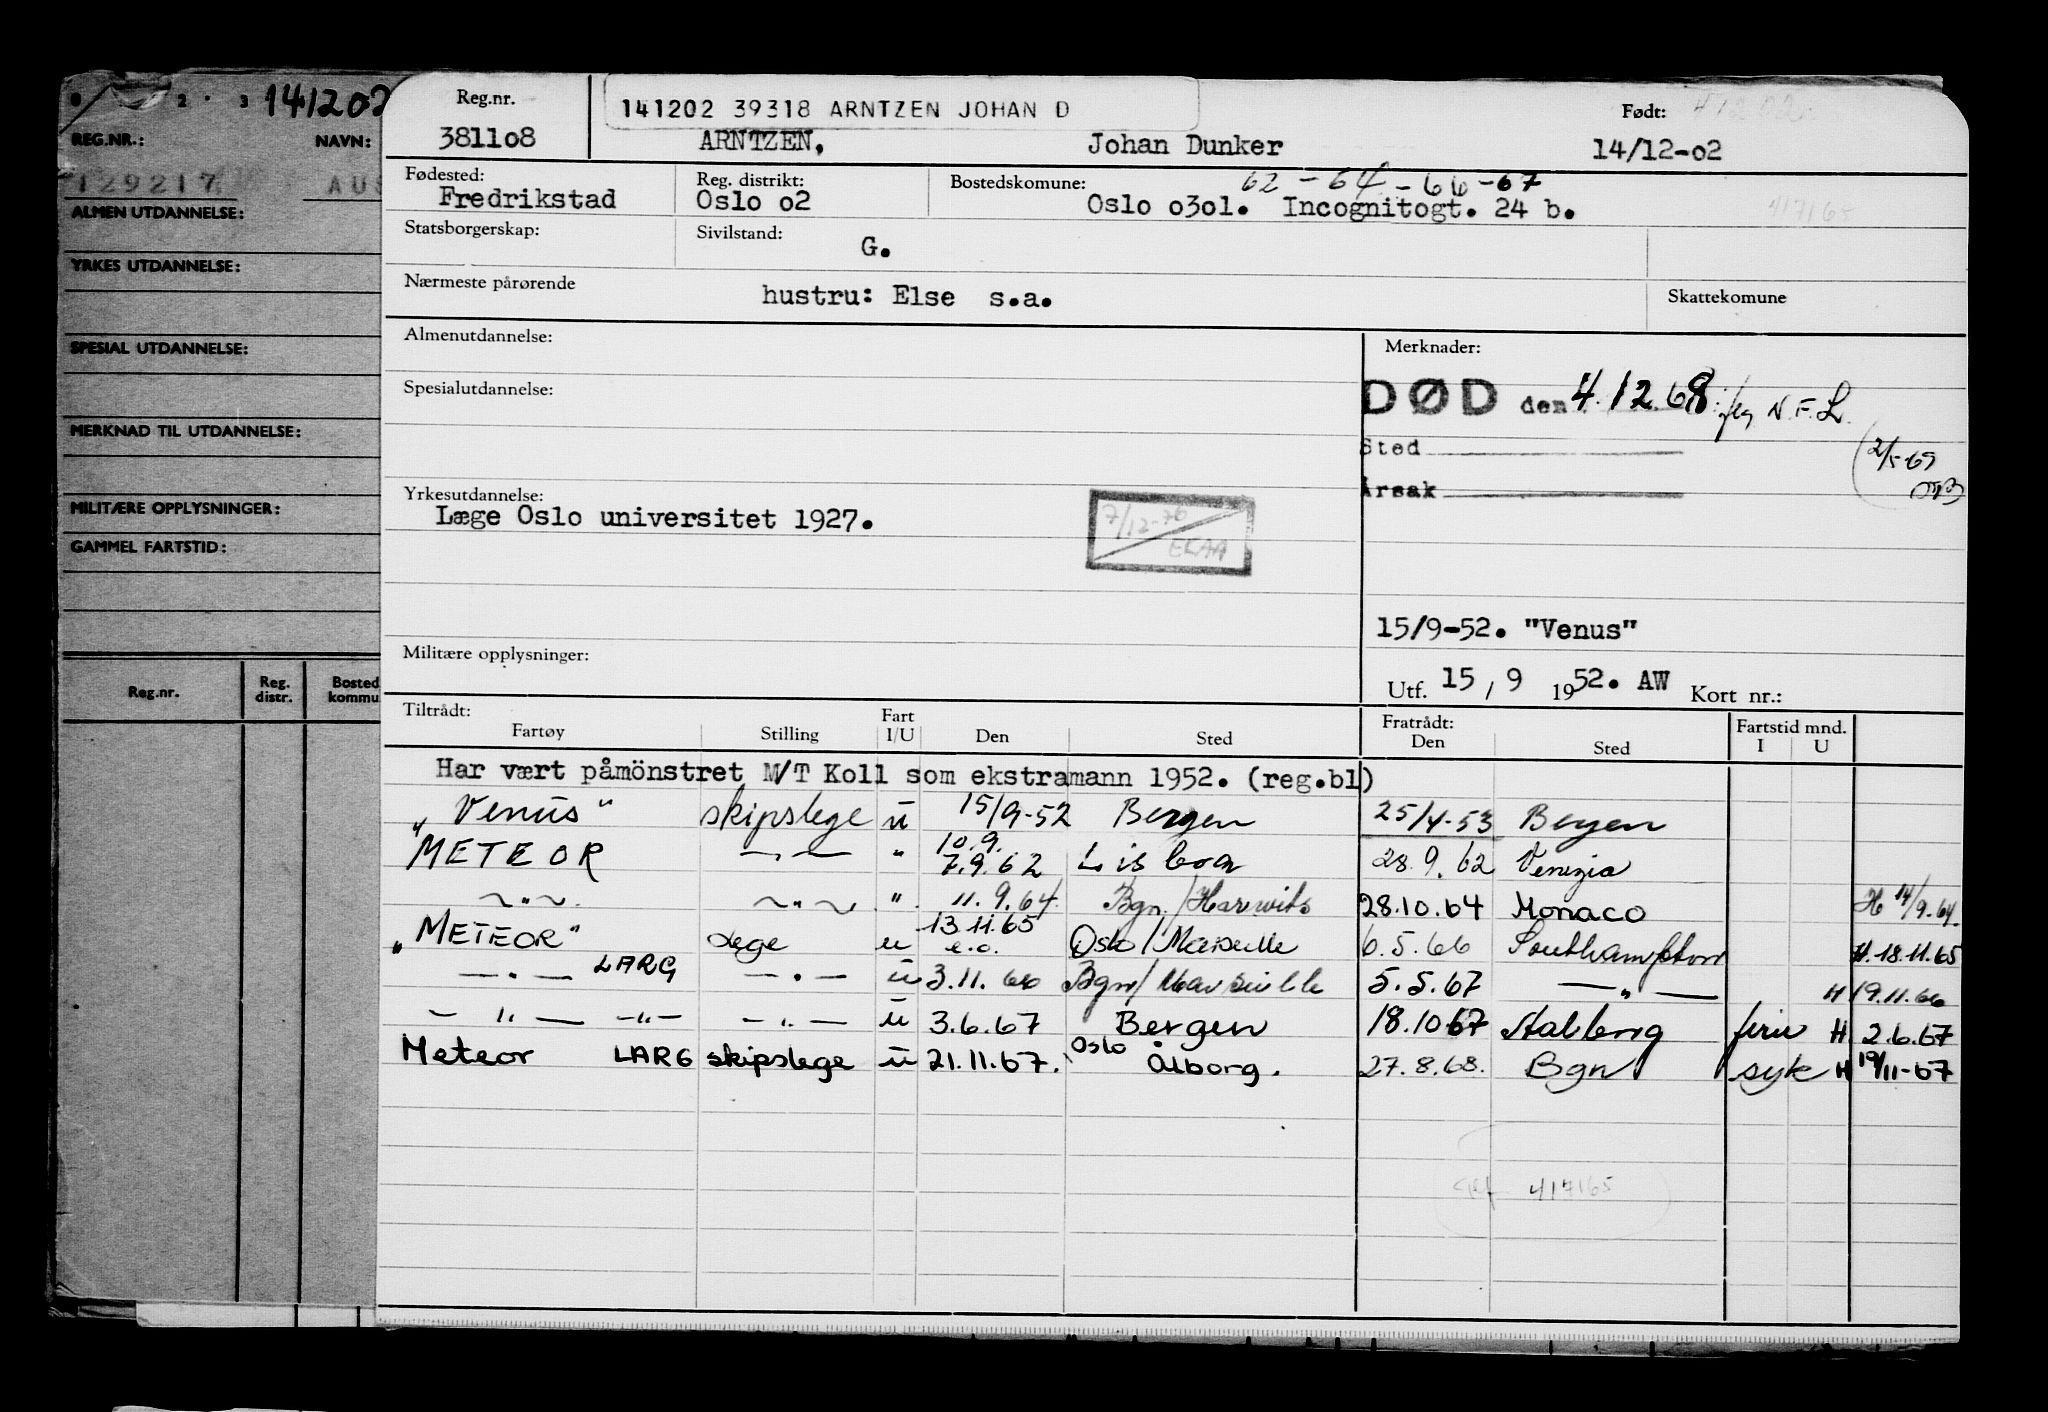 2 3 141202
REG.NR.: NAVN:
129217 AUS
ALMEN UTDANNELSE:
YRKES UTDANNELSE:
SPESIAL UTDANNELSE:
MERKNAD TIL UTDANNELSE:
MILITÆRE OPPLYSNINGER:
GAMMEL FARTSTID:
Reg.nr. Reg. distr. Bosted kommu
Reg.nr. 141202 39318 ARNTZEN JOHAN D Født:
381108 ARNTZEN, Johan Dunker 14/12-02
Fødested: Reg. distrikt: Bostedskomune: 62 - 64 - 66 - 67
Fredrikstad Oslo 02 Oslo 0301. Incognitogt. 24 b. 417165
Statsborgerskap: Sivilstand: G.
Nærmeste pårørende hustru: Else s.a. Skattekomune
Almenutdannelse: Merknader:
DØD den 4.12.68 N.F.L.
Spesialutdannelse:
Sted 2/5-69
Årsak
Yrkesutdannelse:
Læge Oslo universitet 1927. 7/12-76
EKAA
15/9-52. "Venus"
Militære opplysninger:
Utf. 15 / 9 1952. AW Kort nr.:
Tiltrådt: Fratrådt: Fartstid mnd.
Fartøy Stilling Fart I/U Den Sted Den Sted I U
Har vært påmönstret M/T Koll som ekstramann 1952. (reg.bl)
"Venus" skipslege u 15/9-52 Bergen 25/4-53 Bergen
"METEOR — " — " 10.9. 7.9.62 Lisboa 28.9.62 Venezia
~ " ~ ~ " ~ " 11.9.64 Bgn./Harwits 28.10.64 Monaco H 14/9.64
"METEOR" Lege u 13.11.65 e.o. Oslo/Marseille 6.5.66 Southampton H.18.11.65
— " — LARG — " — u 3.11.66 Bgn/Marseille 5.5.67 — " — H 19.11.66
— " — — " — — " — u 3.6.67 Bergen 18.10.67 Aalborg ferie H 2.6.67
Meteor LARG skipslege u 21.11.67. Oslo Ålborg. 27.8.68. Bgn syk H 19/11-67
417165